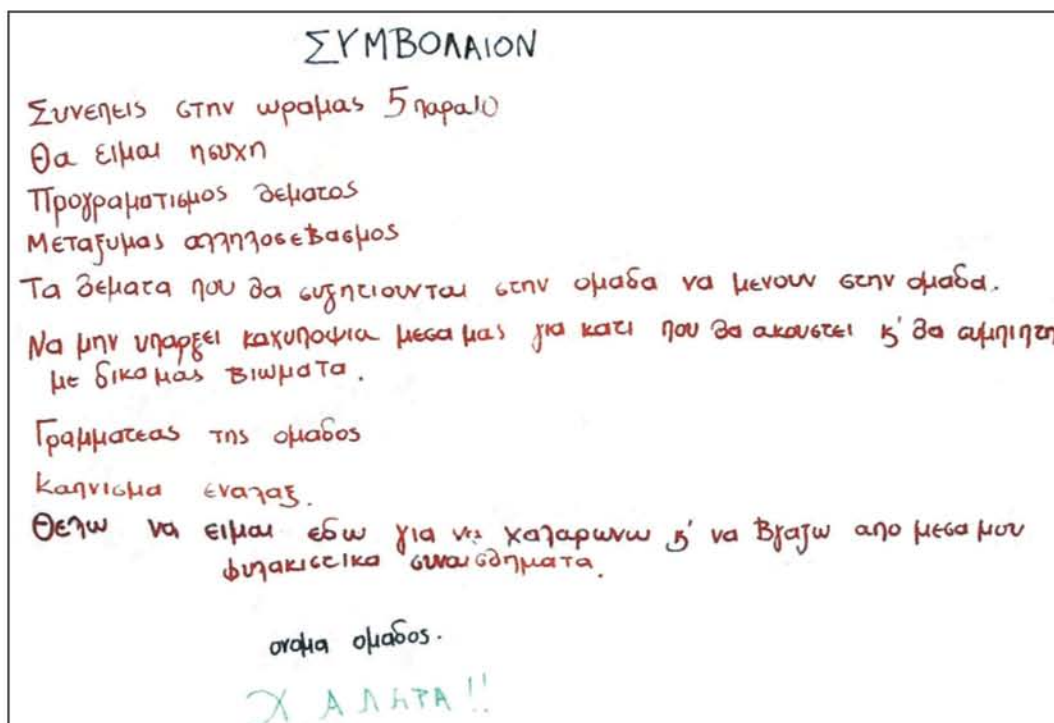 ΣΥΜΒΟΛΑΙΟΝ
Συνεπεις στην ωραμας 5 παρα 10
Θα ειμαι ησυχη
Προγραματισμος θεματος
Μεταξυμας αλληλοσεβασμος
Τα θεματα που θα συζητιουνται στην ομαδα να μενουν στην ομαδα.
Να μην υπαρξει καχυποψια μεσα μας για κατι που θα ακουστει κ' θα συμπιπτη
με δικα μας βιωματα.
Γραμματεας της ομαδος
Καπνισμα εναλαξ.
Θελω να ειμαι εδω για να χαλαρωνω κ' να βγαζω απο μεσα μου
φυλακιστικα συναισθηματα.
ονομα ομαδος.
ΧΑΛΑΡΑ!!